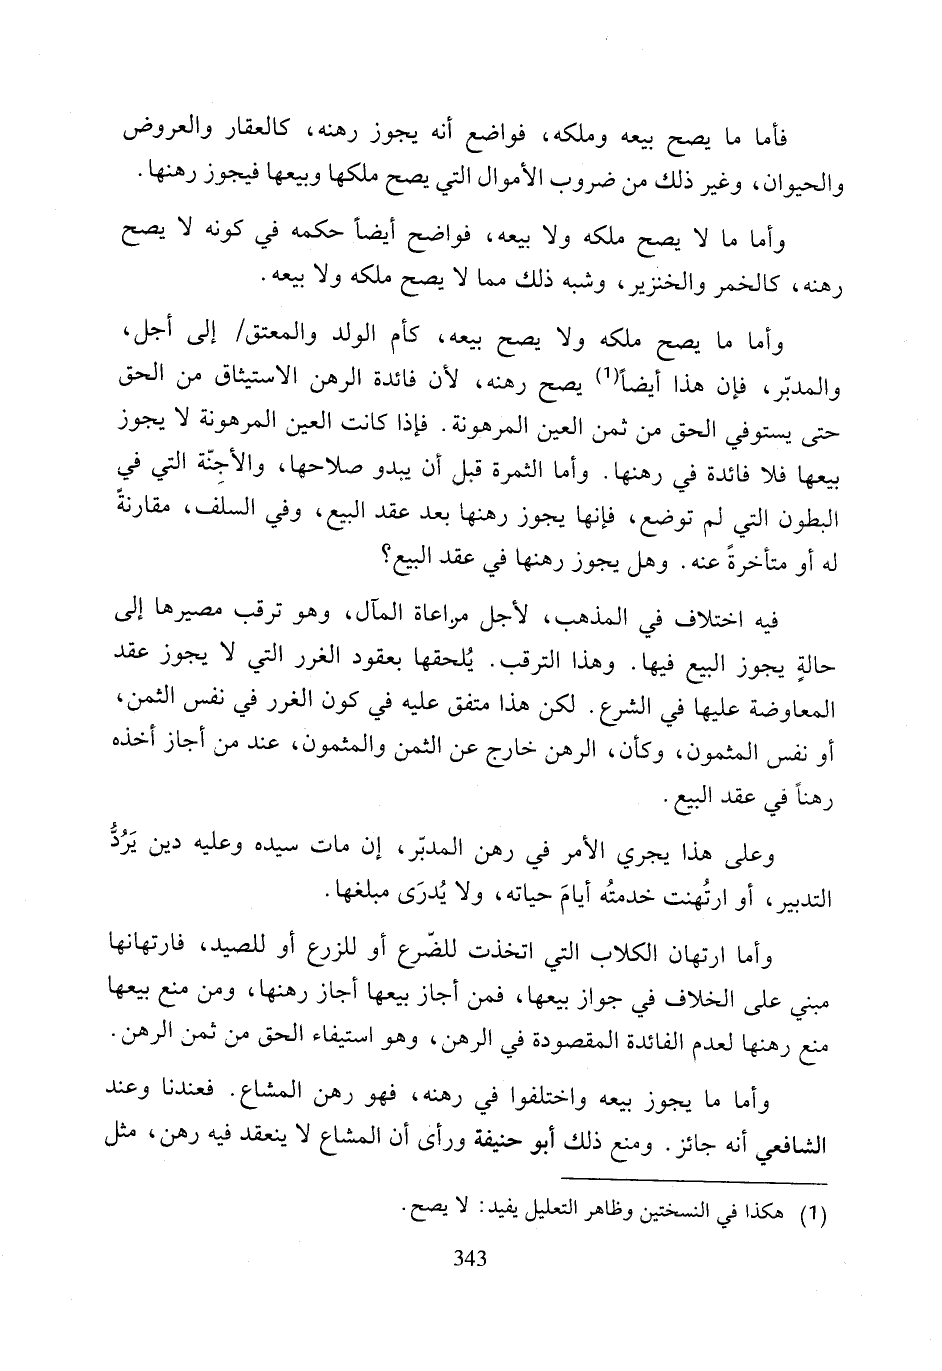 فأما ما يصح بيعه وملكه، فواضع أنه يجوز رهنه، كالعقار والعروض
والحيوان، وغير ذلك من ضروب الأموال التي يصح ملكها وبيعها فيجوز رهنها.
وأما ما لا يصح ملكه ولا بيعه، فواضح أيضاً حكمه في كونه لا يصح
رهنه، كالخمر والخنزير، وشبه ذلك مما لا يصح ملكه ولا بيعه.
وأما ما يصح ملكه ولا يصح بيعه، كأم الولد والمعتق/ إلى أجل،
والمدبّر، فإن هذا أيضاً(1) يصح رهنه، لأن فائدة الرهن الاستيثاق من الحق
حتى يستوفي الحق من ثمن العين المرهونة. فإذا كانت العين المرهونة لا يجوز
بيعها فلا فائدة في رهنها. وأما الثمرة قبل أن يبدو صلاحها، والأجنّة التي في
البطون التي لم توضع، فإنها يجوز رهنها بعد عقد البيع، وفي السلف، مقارنةً
له أو متأخرةً عنه. وهل يجوز رهنها في عقد البيع؟
فيه اختلاف في المذهب، لأجل مراعاة المآل، وهو ترقب مصيرها إلى
حالةٍ يجوز البيع فيها. وهذا الترقب. يُلحقها بعقود الغرر التي لا يجوز عقد
المعاوضة عليها في الشرع. لكن هذا متفق عليه في كون الغرر في نفس الثمن،
أو نفس المثمون، وكأن، الرهن خارج عن الثمن والمثمون، عند من أجاز أخذه
رهناً في عقد البيع.
وعلى هذا يجري الأمر في رهن المدبّر، إن مات سيده وعليه دين يَرُدُّ
التدبير، أو ارتُهنت خدمتُه أيامَ حياته، ولا يُدرَى مبلغها.
وأما ارتهان الكلاب التي اتخذت للضّرع أو للزرع أو للصيد، فارتهانها
مبني على الخلاف في جواز بيعها، فمن أجاز بيعها أجاز رهنها، ومن منع بيعها
منع رهنها لعدم الفائدة المقصودة في الرهن، وهو استيفاء الحق من ثمن الرهن.
وأما ما يجوز بيعه واختلفوا في رهنه، فهو رهن المشاع. فعندنا وعند
الشافعي أنه جائز. ومنع ذلك أبو حنيفة ورأى أن المشاع لا ينعقد فيه رهن، مثل
(1) هكذا في النسختين وظاهر التعليل يفيد: لا يصح.
343